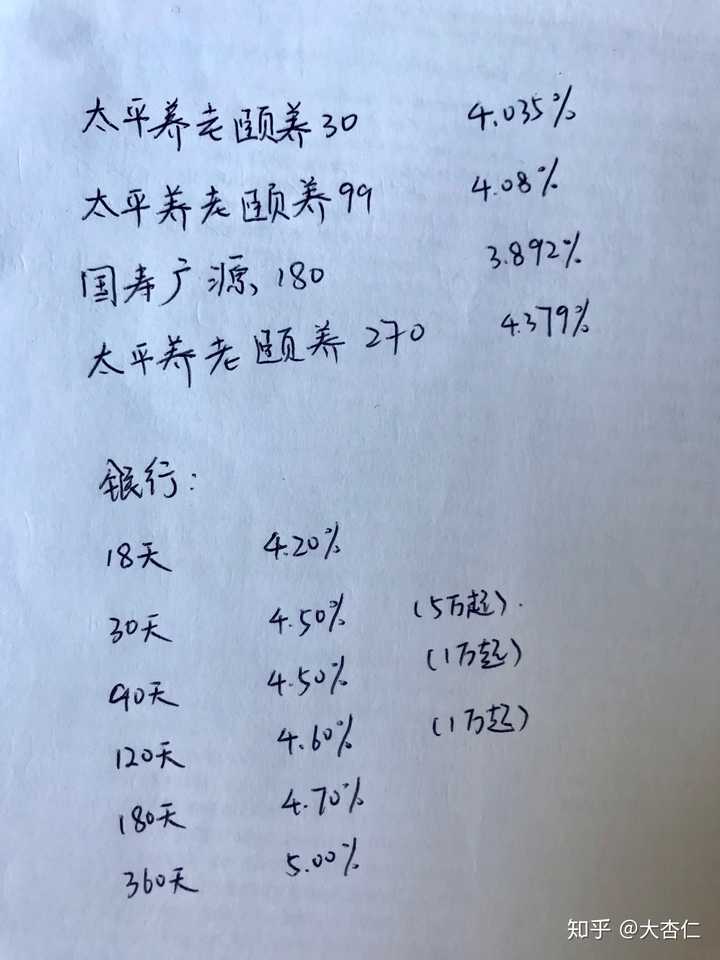 太平养老颐养30 4.035%
太平养老颐养99 4.08%
国寿广源180 3.892%
太平养老颐养270 4.379%
银行:
18天 4.20%
30天 4.50% (5万起).
90天 4.50% (1万起)
120天 4.60% (1万起)
180天 4.70%
360天 5.00%
知乎 @大杏仁